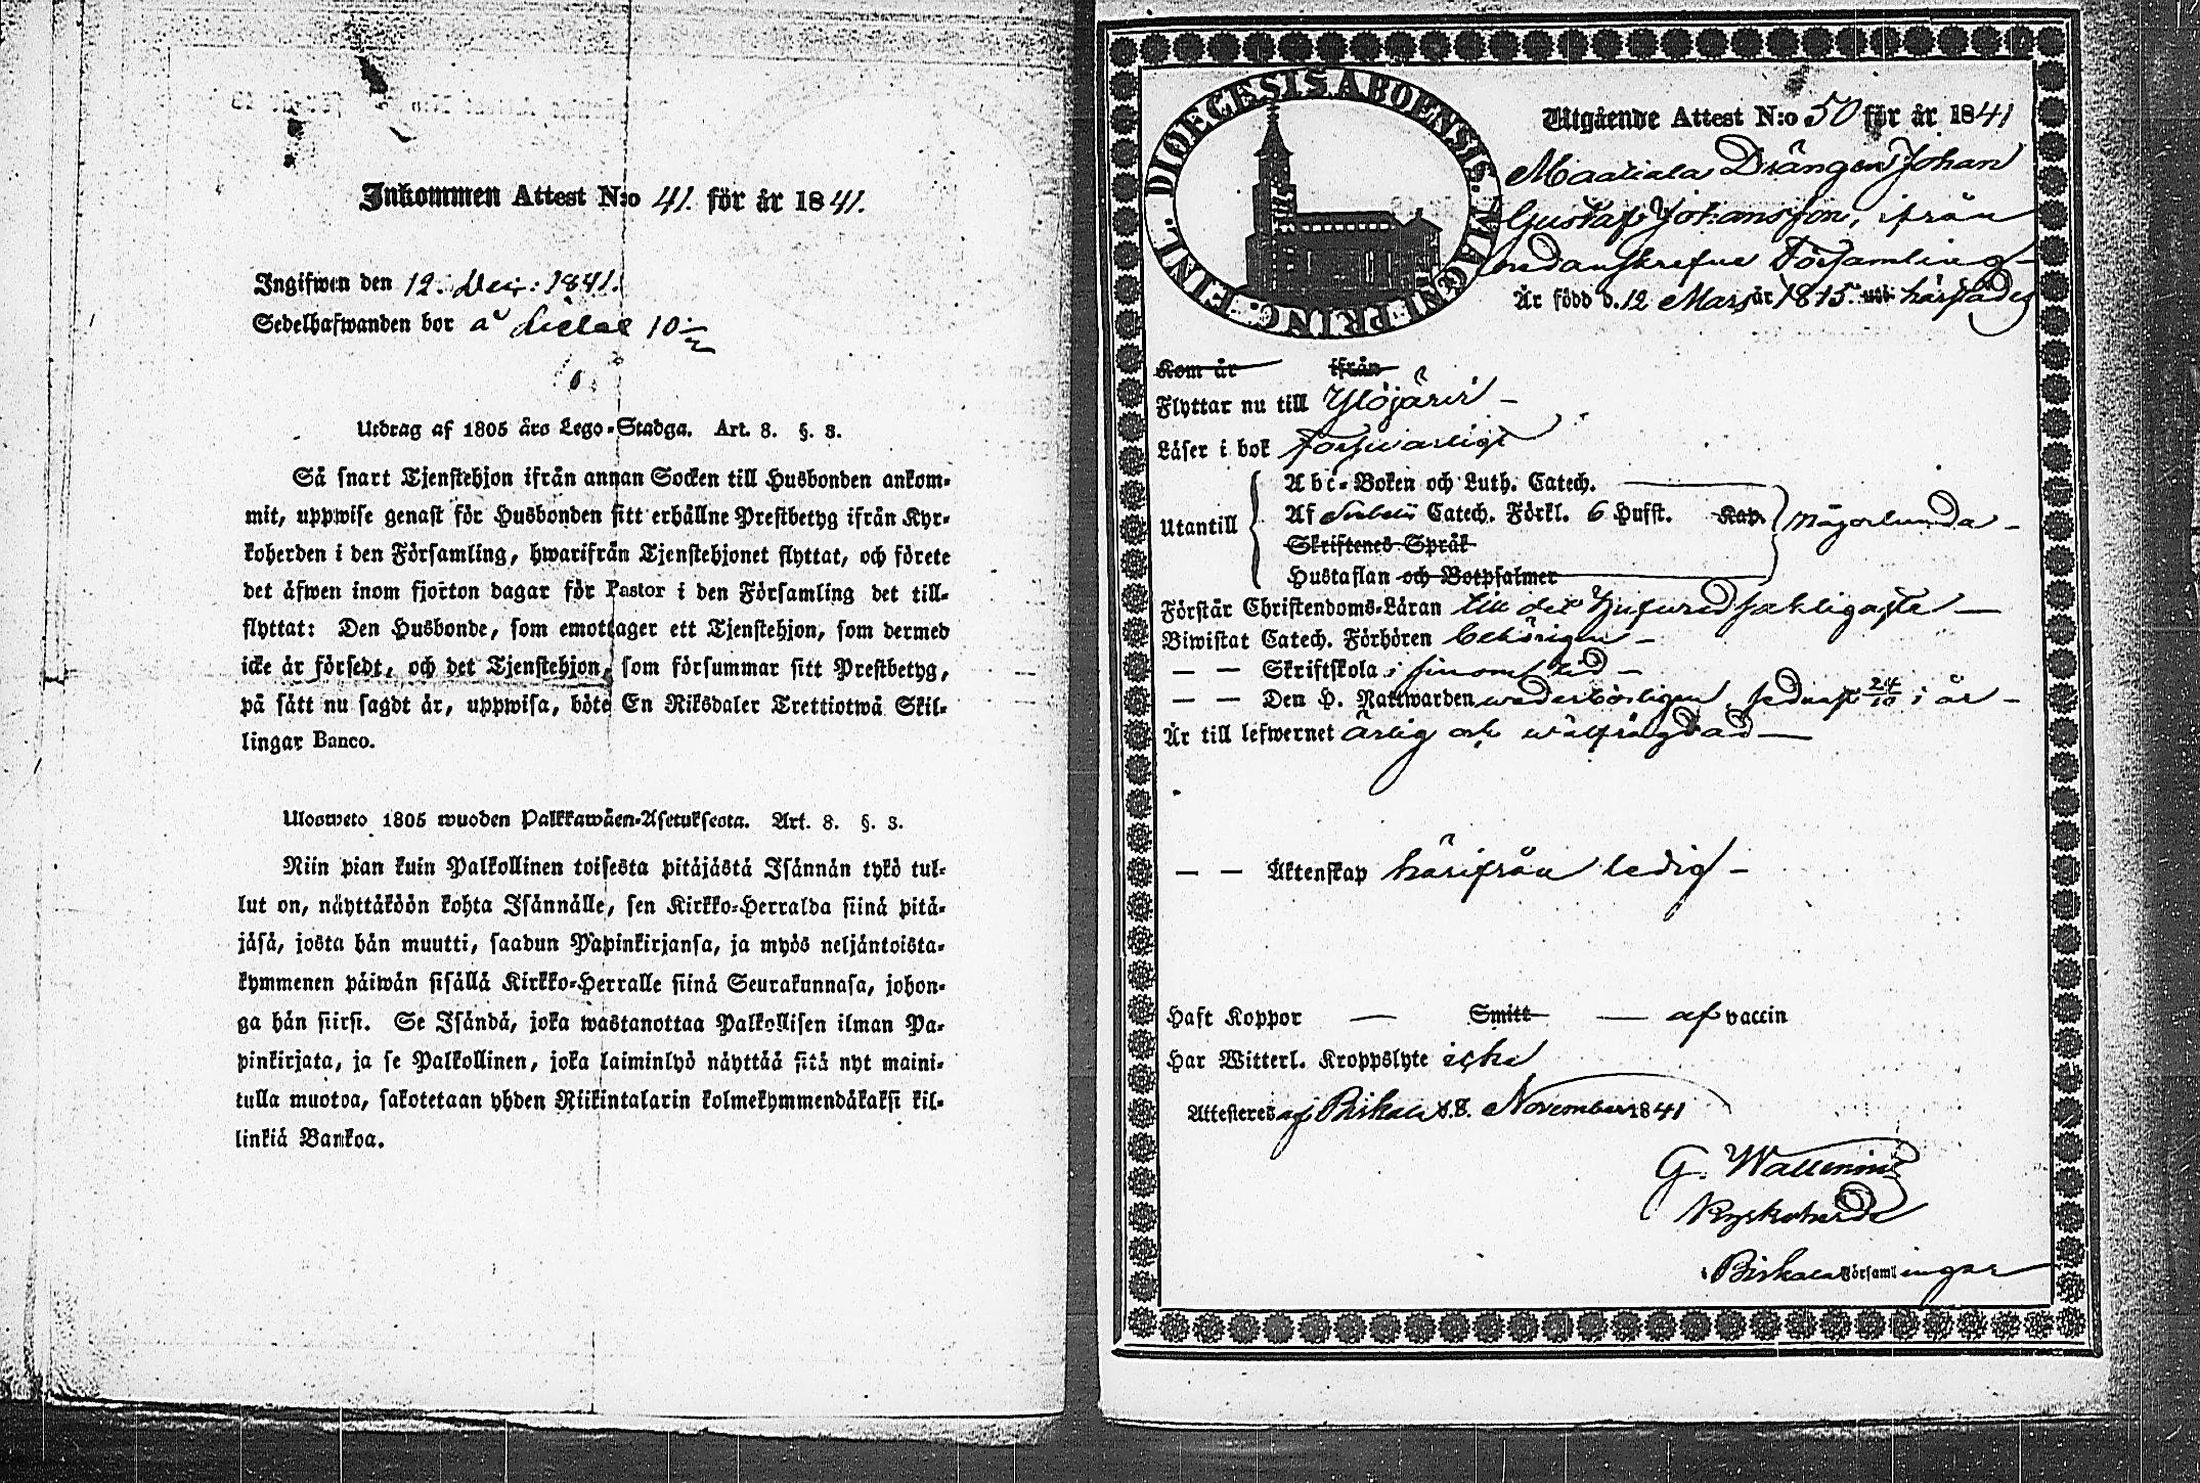 Inkommen Attest N:o 41. för år 1841.
Ingifwen den 12. Dec: 1841.
Sedelhafwanden bor å
Utdrag af 1805 års Lego-Stadga. Art. 8. §. 3.
Så snart Tjenstehjon ifrån annan Socken till Husbonden ankom-
mit, uppwise genast för Husbonden sitt erhållne Prestbetyg ifrån Kyr-
koherden i den Församling, hwarifrån Tjenstehjonet flyttat, och förete
det äfwen inom fjorton dagar för Pastor i den Församling det till-
flyttat: Den Husbonde, som emottager ett Tjenstehjon, som dermed
icke är försedt, och det Tjenstehjon, som försummar sitt Prestbetyg,
på sätt nu sagdt är, uppwisa, böte En Riksdaler Trettiotwå Skil-
lingar Banco.
Ulosweto 1805 wuoden Palkkawäen-Asetuksesta. Art. 8. §. 3.
Niin pian kuin Palkollinen toisesta pitäjästä Isännän tykö tul-
lut on, näyttäköön kohta Isännälle, sen Kirkko-Herralda siinä pitä-
jäsä, josta hän muutti, saadun Papinkirjansa, ja myös neljäntoista-
kymmenen päiwän sisällä Kirkko-Herralle siinä Seurakunnasa, johon-
ga hän siirsi. Se Isändä, joka wastanottaa Palkollisen ilman Pa-
pinkirjata, ja se Palkollinen, joka laiminlyö näyttää sitä nyt maini-
tulla muotoa, sakotetaan yhden Riikintalarin kolmekymmendäkaksi kil-
linkiä Bankoa.
DIOECESIS ABOENSIS. MAGNI PRINC. FINL.
Utgående Attest N:o 50 för år 1841
Maatiala Drängen Johan
Gustaf Johansson, ifrån
nedanskrefne Församling
Är född d. 12 Mars år 1815. uti härstädes
Kom år ifrån
Flyttar nu till Ylöjärvi
Läser i bok försvarligt
Utantill
Abc-Boken och Luth. Catech.
Af Catech. Förkl. 6 Hufst. Kap. någorlunda
Skriftenes Språk
Hustaflan och Botpsalmer
Förstår Christendoms-Läran till det hufvudsakligaste
Biwistat Catech. Förhören behörigen
— — Skriftskola i sinom tid
— — Den H. Nattwarden wederbörligen, sednast 24/10 i år
Är till lefwernet ärlig och wälfrägdad
— — Äktenskap härifrån ledig
Haft Koppor — Smitt — af vaccin
Har Witterl. Kroppslyte icke
Attesteres af Birkala d. 8. November 1841
G. Wallenius
Kyrkoherde
i Birkala Församlingar